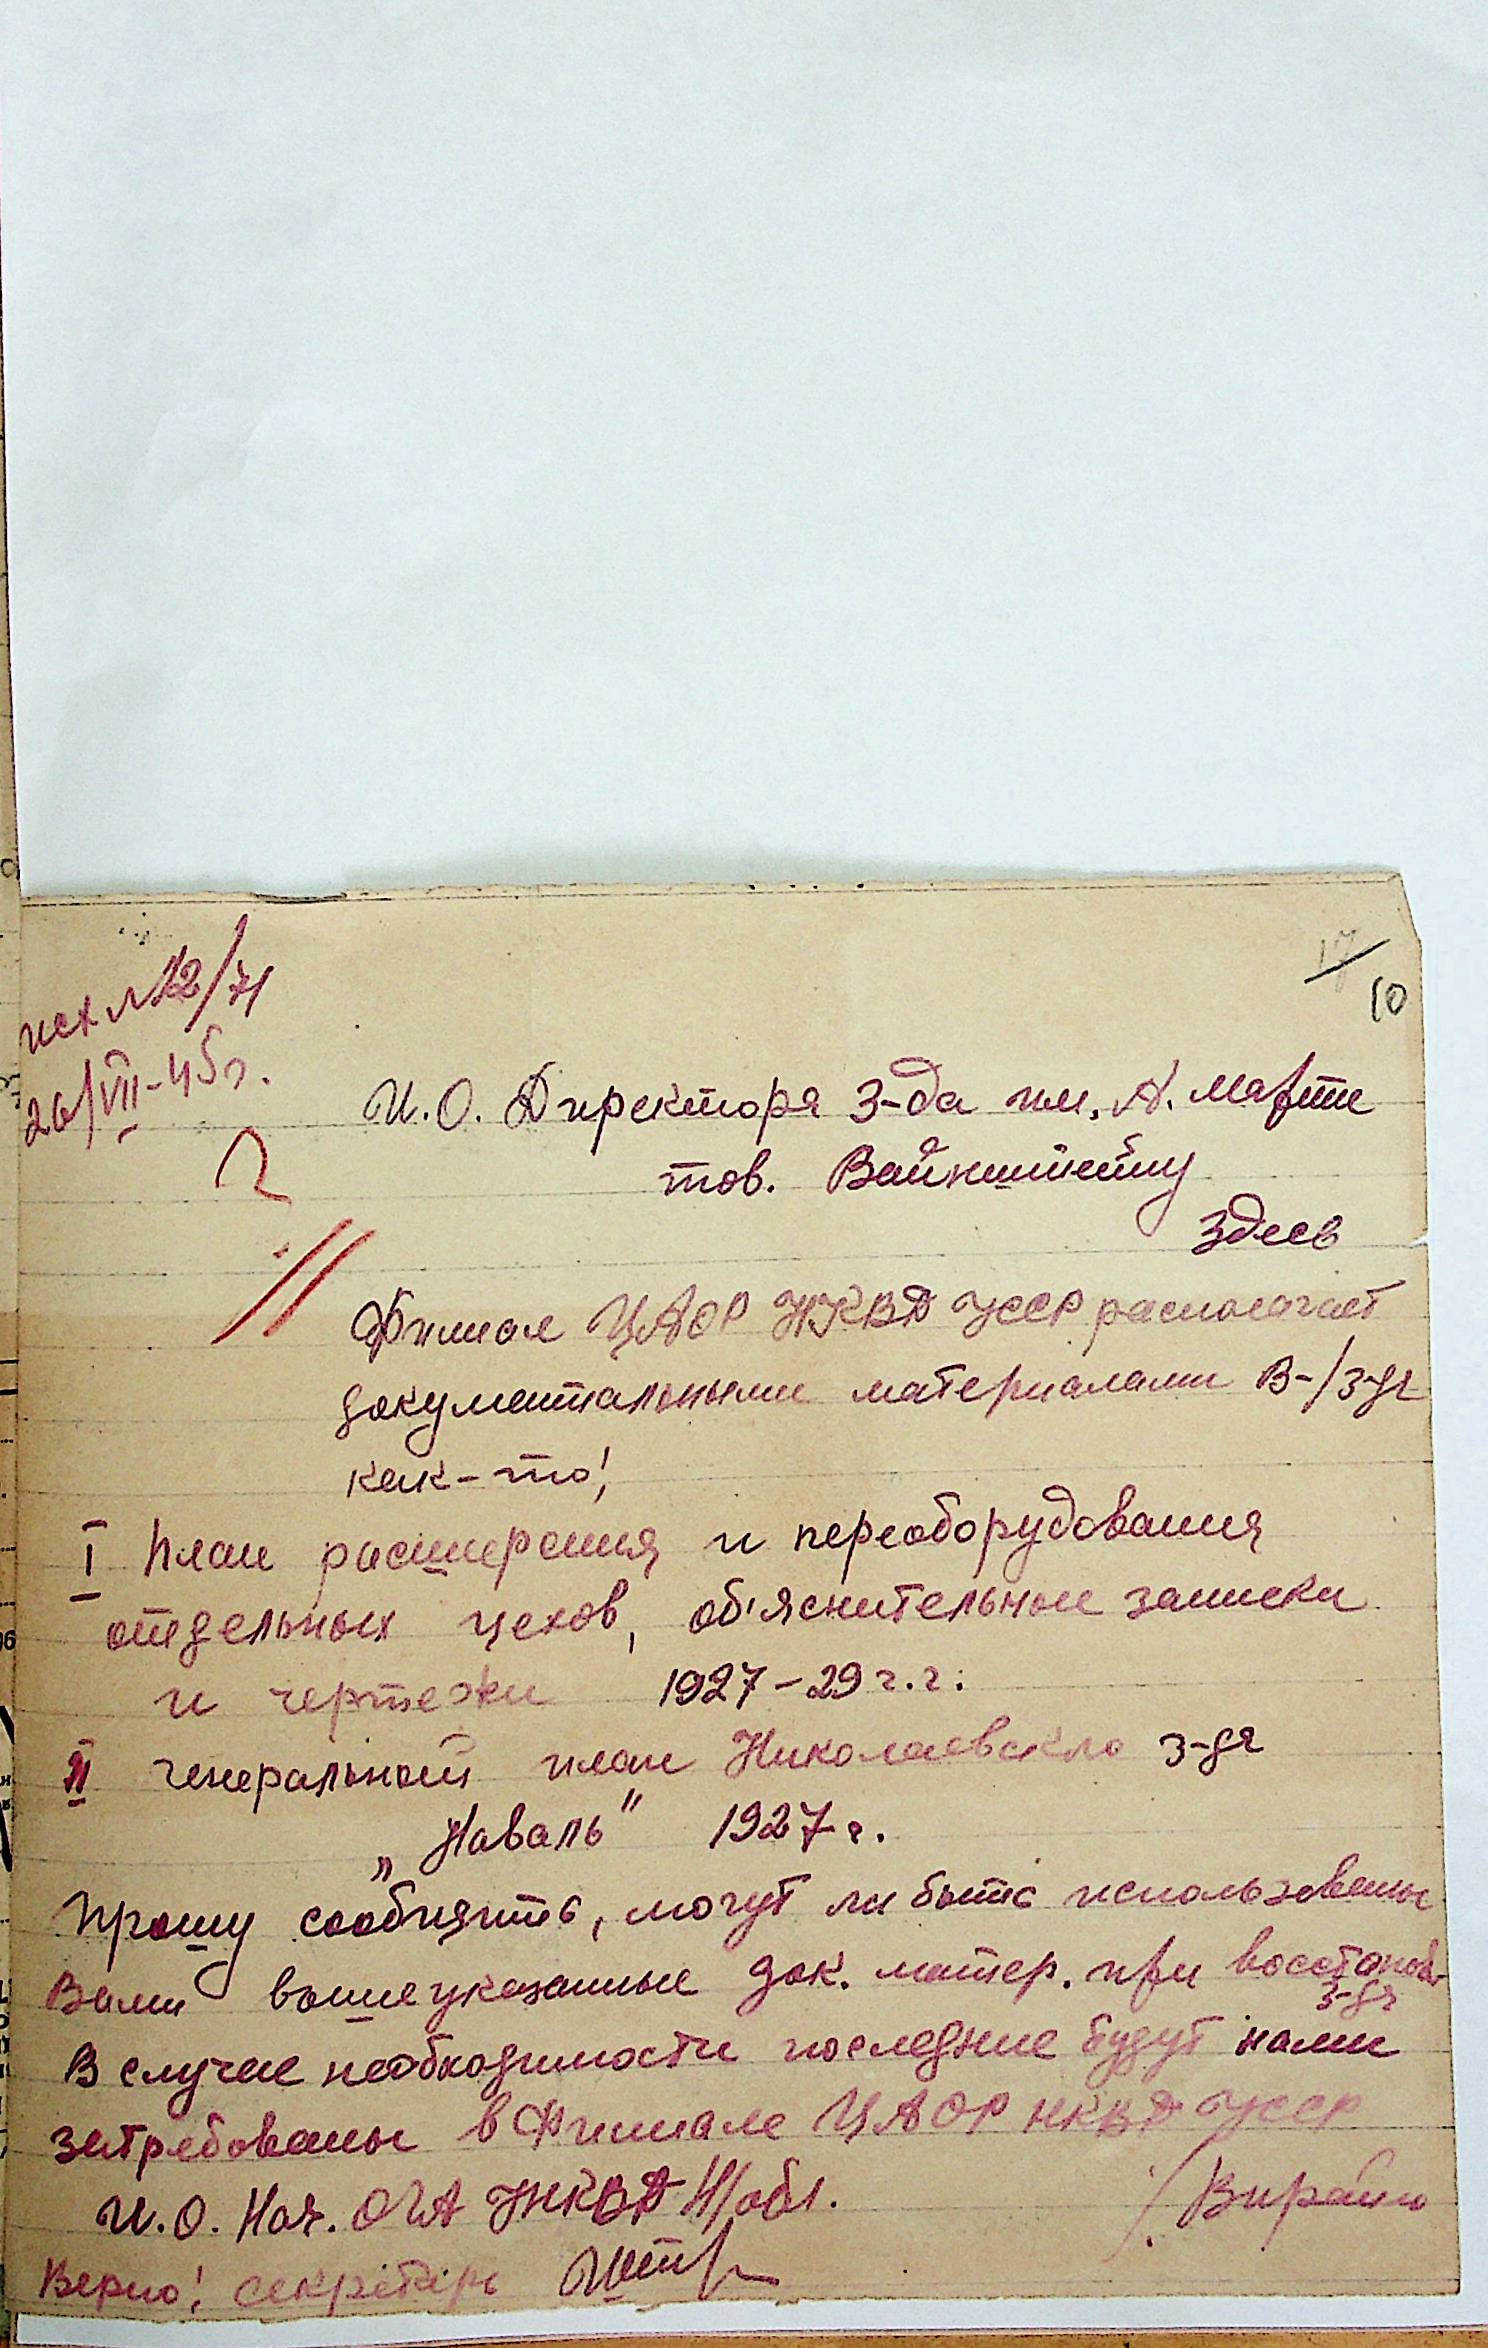 исх №12/71
26/VII-45г.
17/10
И.О. Директора З-да им. А. Марти
тов. Вайнштейну
Здесь
Филиал ЦАОР НКВД УССР располагает
документальными материалами В-/З-да
как-то:
I План расширения и переоборудования
отдельных цехов, об'яснительные записки
и чертежи 1927-29 г.г.
II генеральный план Николаевского з-да
„Наваль" 1927 г.
Прошу сообщить, могут ли быть использованы
Вами вышеуказанные док. матер. при восстанов.
з-да
В случае необходимости последние будут нами
затребованы в Филиале ЦАОР НКВД УССР
И.О. Нач. ОГА УНКВД Н/обл.
Верно! секретарь